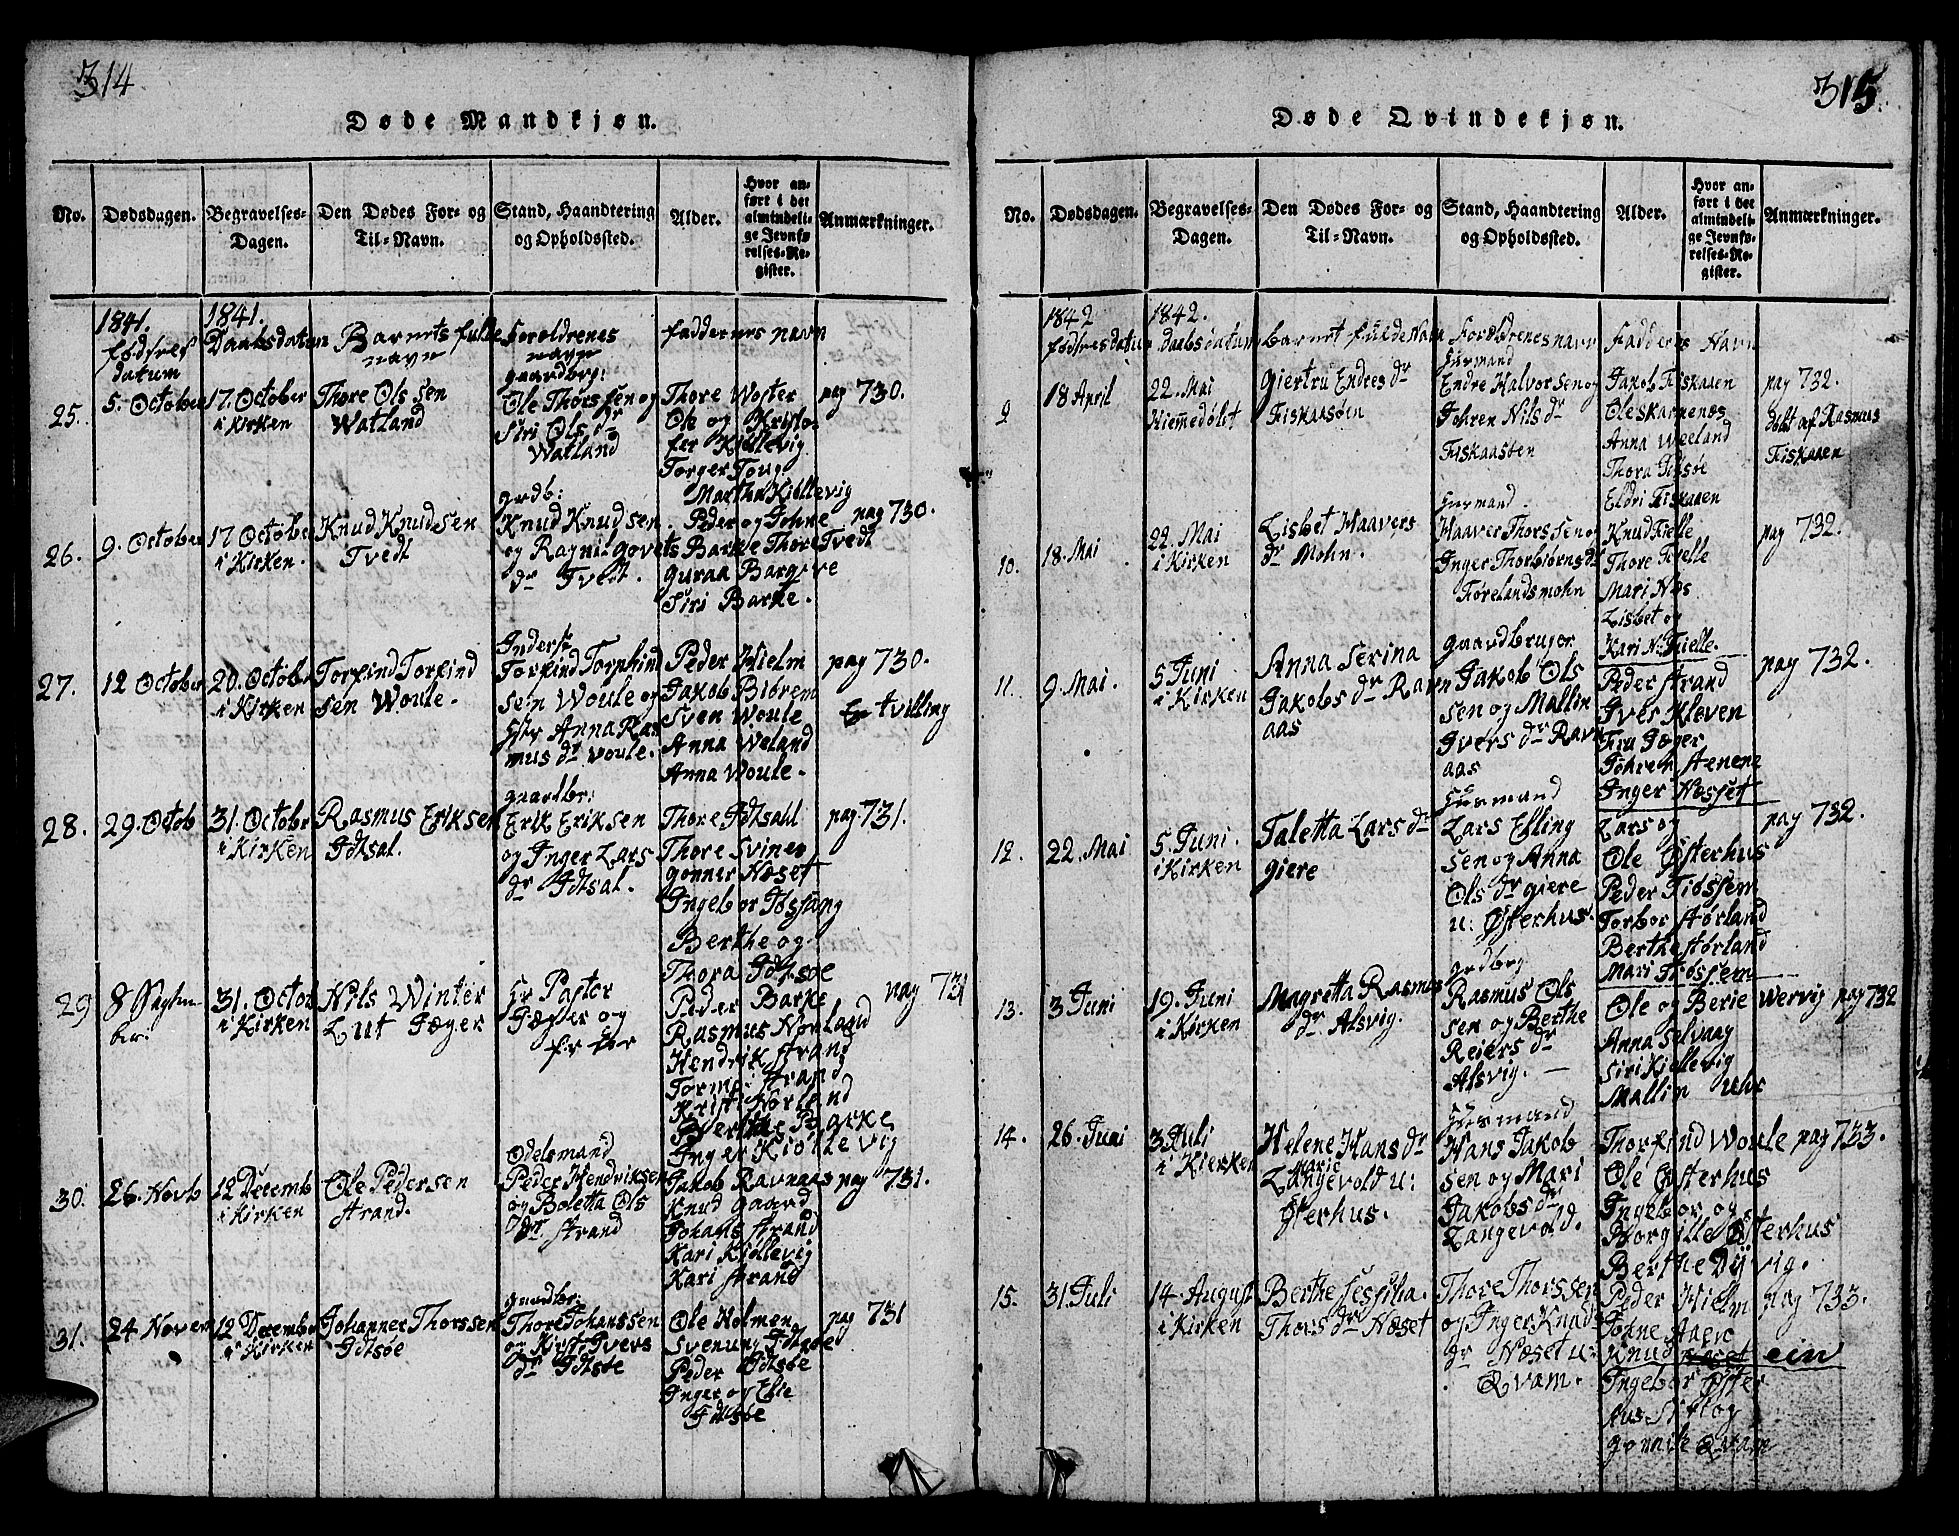 314
Døde Mandkjøn.
No.
Dødsdagen.
Begravelses-
Dagen.
Den Dødes For- og
Til-Navn.
Stand, Haandtering
og Opholdssted.
Alder.
Hvor an-
ført i det
almindeli-
ge Jevnfø-
relses-Re-
gister.
Anmærkninger.
1841.
fødsels
datum
1841.
Daabsdatum
Barnets fulle
navn
Foroldrenes
navn
faddernes navn
25.
5. October
17. October
i Kirken
Thore Olssen
Watland
gaardbrg:
Ole Thorssen og
Siri Ols dr
Watland
Thore Woster
Ole og Kristo-
fer Kiøllevig
Torger Toug
Martha Kiøllevig
pag 730.
26.
9. October
17 October
i Kirken.
Knud Knudsen
Tvedt
grdb:
Knud Knudsen
og Ragnil Govets
dr Tvert.
Peder og Johne
Barke Thore Tvedt
Guraa Bargive
Siri Barke.
pag 730.
27.
12 October
20. October
i Kirken
Torfind Torfind
sen Woule.
Inderse
Torfind Torfind
sen Woule og
Anna Ras
mus dr Woule.
Peder Hielm
Jakob Biørem
Sven Woule
Anna Weland
Anna Woule.
pag 730.
En tvilling
28.
29. Octob
31. October
i Kirken
Rasmus Eriksen
Idtsal.
gaardbr:
Erik Eriksen
og Inger Lars
dr Idtsal.
Thore Idtsahl
Thore Svines
gonner Næset
Ingebor Tøssang
Berthe og
Thora Idtsøe
pag 731.
29
8 Septem
ber.
31. Octob
i Kirken
Nils Winter
Lut Jæger
Hr Pastor
Jæger og
frue
Peder Barke
Rasmus Norland
Hendrik Strand
Tormo: Strand
Krist: Norland
Berthe Barke
Inger Kiøllevig
pag 731
30.
26. Novb
12 Decemb
i Kirken
Ole Pedersen
Strand.
Odelsmand
Peder Hendriksen
og Boletta Ols
dr. Strand
Jakob Ravnaas
Knud Gaard
Johans Strand
Kari Kiøllevig
Kari Strand
pag 731.
31.
24. Novem
12 Decembe
i Kirken
Johannes Thorssen
Idtsøe
gaardbr:
Thore Johanssen
og Kirst: Ivers
dr Idtsøe
Ole Holmen
Svenung Idtsøe
Peder Idtsøe
Inger og Elie
Idtsøe
pag 731
315.
Døde Qvindekjøn.
No.
Dødsdagen.
Begravelses-
Dagen.
Den Dødes For- og
Til-Navn.
Stand, Haandtering
og Opholdssted.
Alder.
Hvor an-
ført i det
almindeli-
ge Jevnfø-
relses-Re-
gister.
Anmærkninger.
1842
fødselsdatum
1842.
daabsdatum
barnet fulde Navn
Forældrenes navn
Fadderes Navn
9
18 April
22. Mai
Hiemmedøbt
Giertru Endres dr
Fiskaasen
Husmand
Endre Halvorsen og
Johren Nils dr
Fiskaasen
Jakob Fiskaaen
Ole Skarnenes
Anna Weeland
Thora Idtsøe
Eldri Fiskaaen
pag 732.
døbt af Rasmus
Fiskaaen
10.
18. Mai
22. Mai
i Kirken
Lisbet Haavers
dr Mohn.
Husmand
Haaver Thorssen og
Inger Thorbiørns dr
Førelandsmohn
Knud Fielle
Thore Fielle
Mari Nøs
Lisbet og
Kari N: Fielle.
pag 732.
11.
9. Mai.
5. Juni
i Kirken
Anna Serina
Jakobs dr Ravn
aas
gaardbruger
Jakob Ols
sen og Mallin
Ivers dr Ravn
aas
Peder Strand
Iver Kleven
Fru Jæger
Johren Stenene
Inger Næsset
pag 732.
12.
22. Mai
5. Juni.
i Kirken
Taletta Lars dr
giere
Husmand
Lars Elling
sen og Anna
Ols dr giere
u: Østerhus.
Lars og
Ole Østerhus
Peder Tiøssem
Torbor Størland
Berthe Størland
Mari Tiøssem
pag 732.
13.
3 Juni
19. Juni
i Kirken
Magretta Rasmus
dr. Alsvig.
grdbrg
Rasmus Ols
sen og Berthe
Reiers dr
Alsvig.
Ole og Berie Wervig
Anna Selvaag
Siri Kiellevig
Mallin Uhr
pag 732
14.
26. Juni
3 Juli
i Kierken
Helene Hans dr
Marie
Langevold u:
Østerhus.
Husmand
Hans Jakob
sen og Mari
Jakobs dr
Langevold.
Thorfind Woule
Ole Østerhus
Ingebor og
Borgille Østerhus
Berthe Dyvig.
pag 733.
15.
31. Juli
14. August
i Kirken
Berthe Sesfilia.
Thors dr Næset
Thore Thorssen
og Inger Knuds
dr Næset u:
Qvam.
Peder Hielm
Johne Aare
Knud ein
Ingebor Øster
hus Siri og
gonnile Qvam
pag 733.